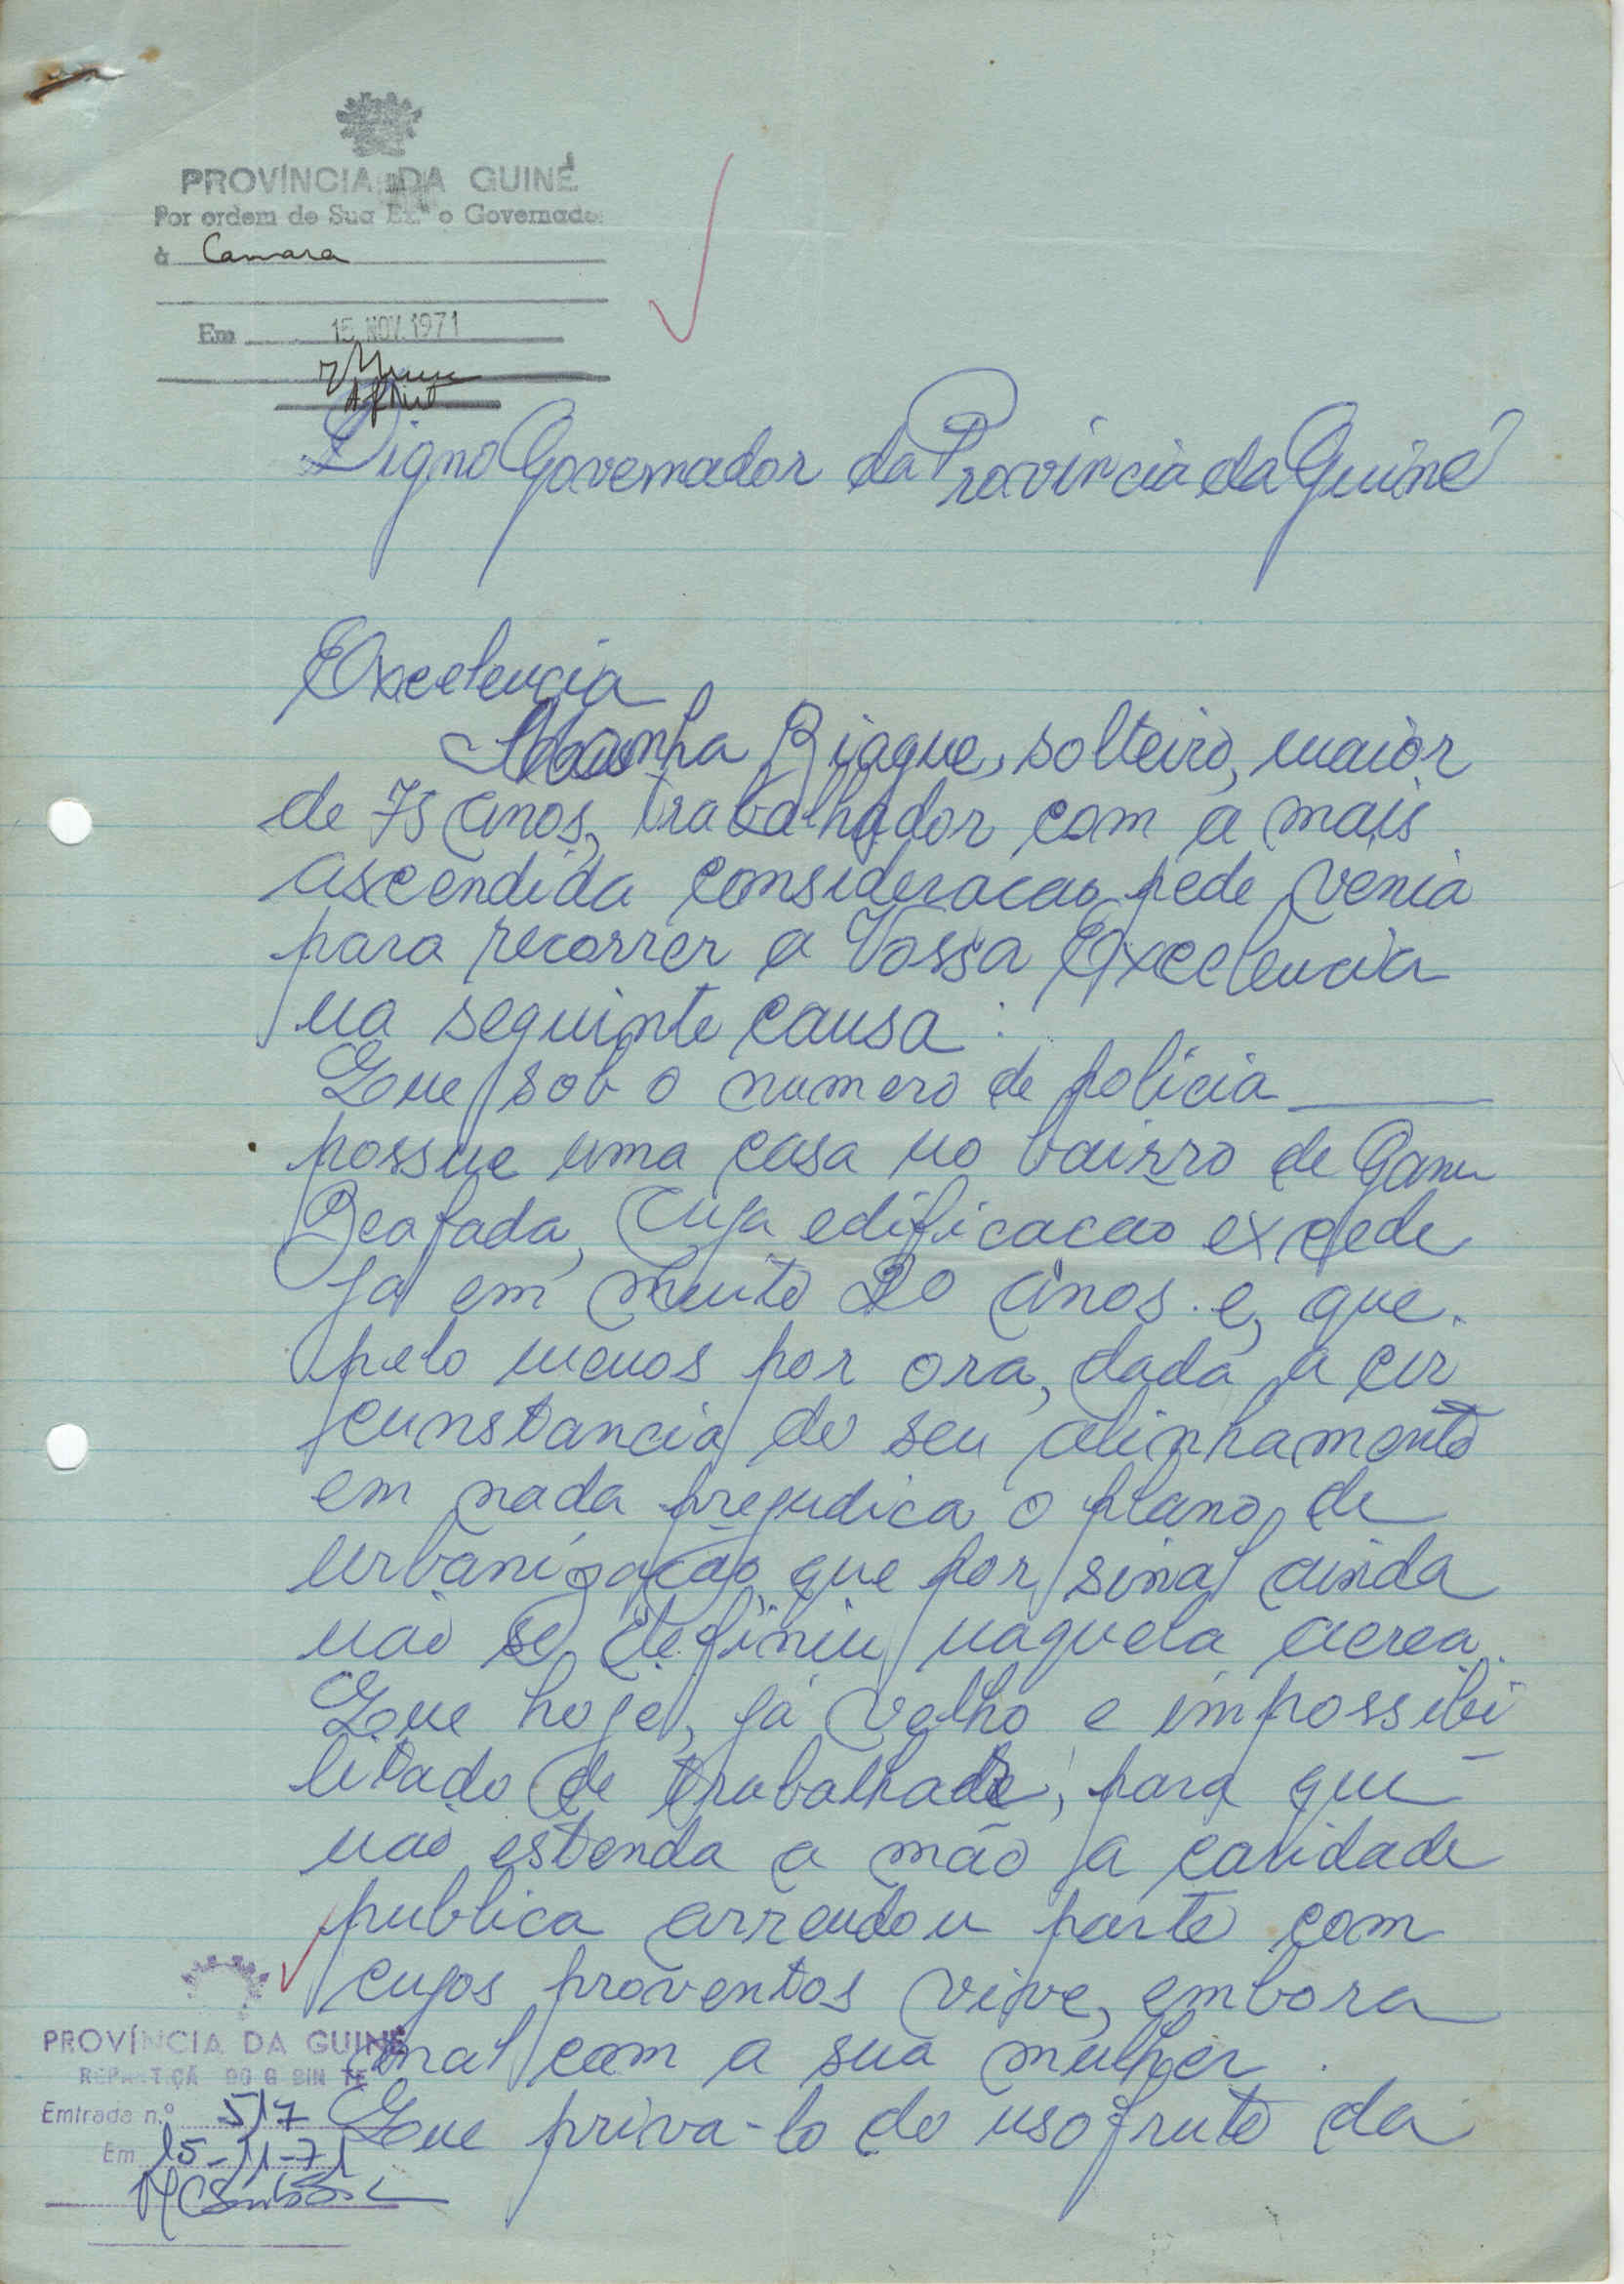 PROVÍNCIA DA GUINÉ
Por ordem de Sua Ex.ª o Governador
à Camara
Em 15 NOV. 1971
Digno Governador da Provincia da Guiné
Excelencia
Biague, solteiro, maior
de 75 anos, trabalhador com a mais
ascendida consideracao pede venia
para recorrer a Vossa Excelencia
na seguinte causa:
Que sob o numero de policia
possue uma casa no bairro de
Beafada, cuja edificacao excede
ja em muito 20 anos e, que
pelo menos por ora, dada a cir
cunstancia do seu alinhamento
em nada prejudica o plano de
urbanização que por sinal ainda
não se definiu naquela aerea.
Que hoje, já velho e impossibi
litado de para que
não estenda a mão a caridade
publica arrendou parte com
cujos proventos vive, embora
mal com a sua mulher.
Que priva-lo do usofruto da
PROVÍNCIA DA GUINÉ
REPARTIÇÃ DO G BIN TE
Entrada n.º 517
Em 15-11-71